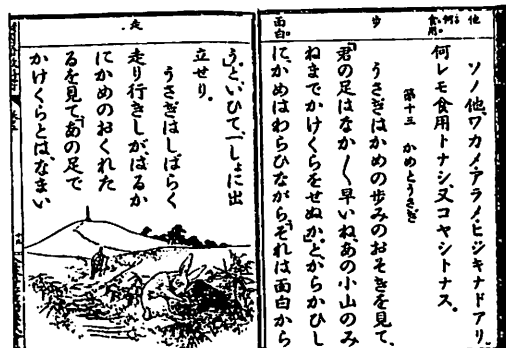 他
何
食用。
ソノ他、ワカメ・アラメ・ヒジキナドアリ。
何レモ食用トナシ、又コヤシトナス。
第十三 かめとうさぎ
歩
うさぎはかめの歩みのおそきを見て、
「君の足はなか〱早いね。あの小山のみ
ねまでかけくらをせぬか。」と、からかひし
面白。
に、かめはわらひながら、「それは面白から
走
う。」といひて、一しょに出
立せり。
うさぎはしばらく
走り行きしがはるか
にかめのおくれた
るを見て、「あの足で
かけくらとは、なまい